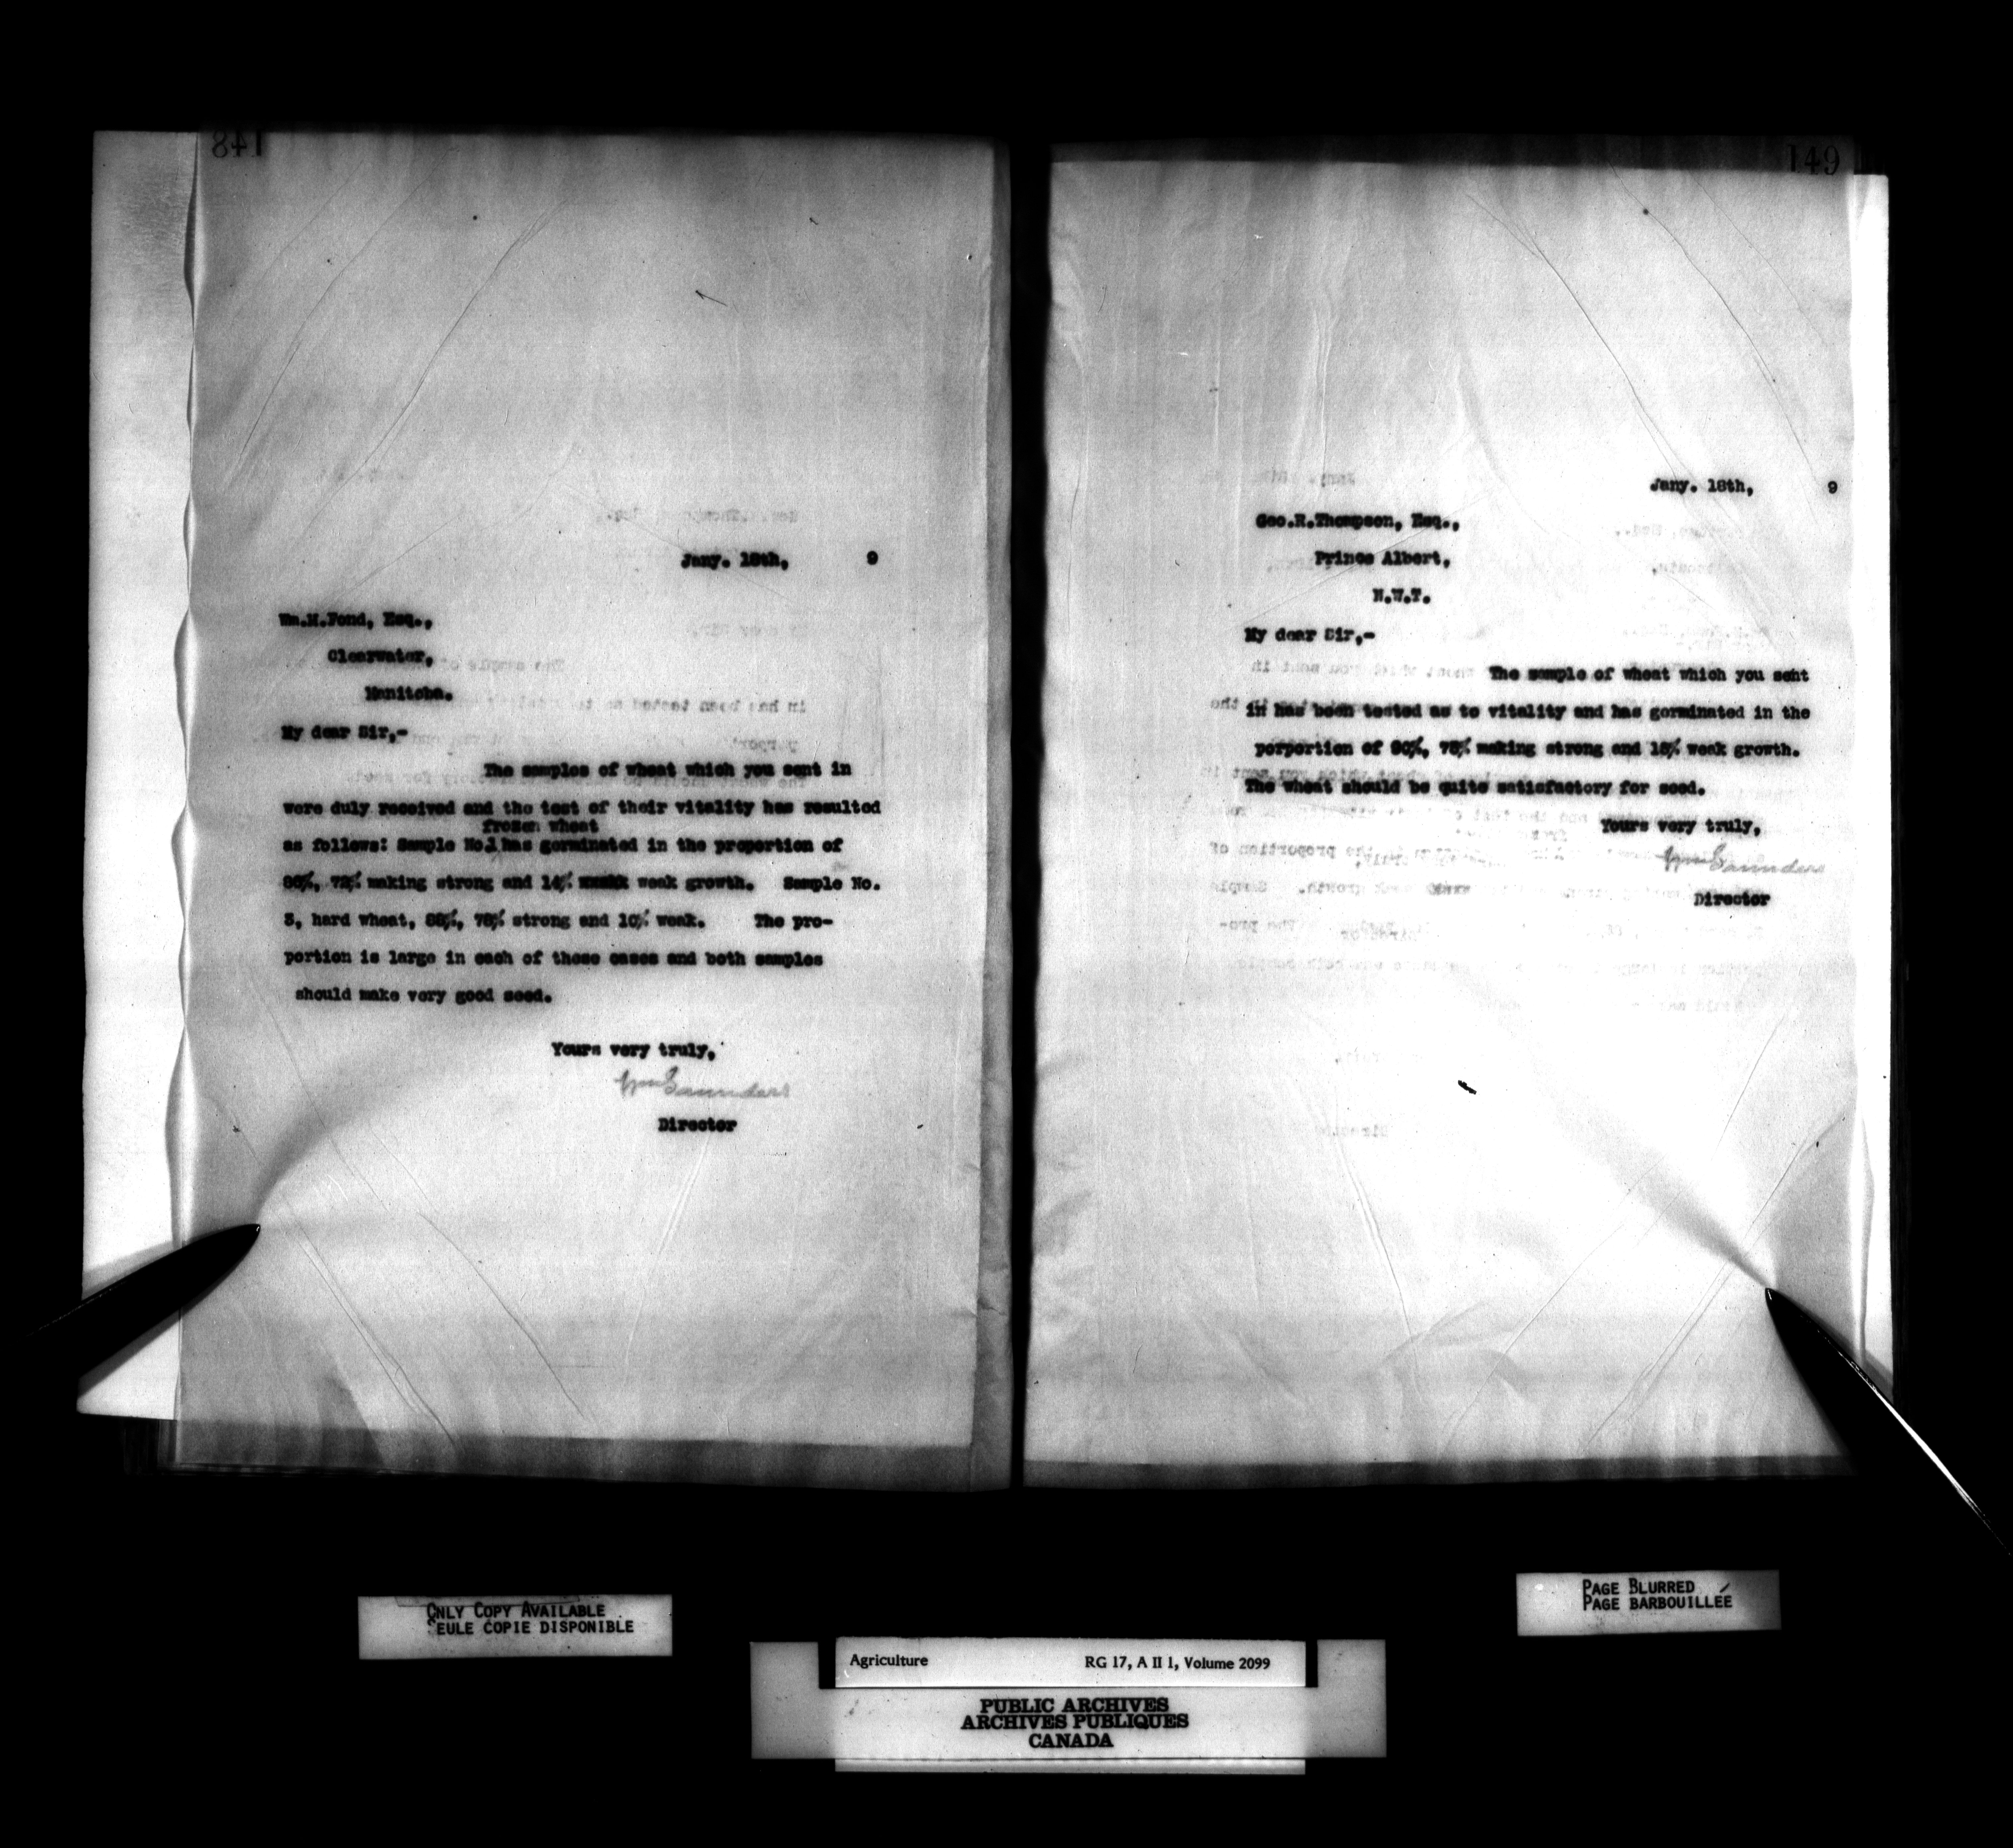 148
Jany. 18th, 9
Wm.M.Fond, Esq.,
Clearwater,
Manitoba.
My dear Sir,-
The samples of wheat which you sent in
were duly received and the test of their vitality has resulted
frozen wheat
as follows: Sample No.1 has germinated in the proportion of
86%, 72% making strong and 14% weak growth. Sample No.
3, hard wheat, 88%, 78% strong and 10% weak. The pro-
portion is large in each of these cases and both samples
should make very good seed.
Yours very truly,
Wm Saunders
Director
149
Jany. 18th, 9
Geo.R.Thompson, Esq.,
Prince Albert,
N.W.T.
My dear Sir,-
The sample of wheat which you seht
in has been tested as to vitality and has germinated in the
porportion of 90%, 75% making strong and 15% weak growth.
The wheat should be quite satisfactory for seed.
Yours very truly,
Wm Saunders
Director
ONLY COPY AVAILABLE
SEULE COPIE DISPONIBLE
PAGE BLURRED
PAGE BARBOUILLÉE
Agriculture RG 17, A II 1, Volume 2099
PUBLIC ARCHIVES
ARCHIVES PUBLIQUES
CANADA